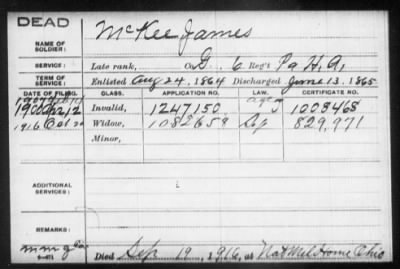 DEAD
McKee James
NAME OF
SOLDIER:
SERVICE:
Late rank, Co. G. 6 Reg't Pa H. A.
TERM OF
SERVICE:
Enlisted Aug 24, 1864 Discharged June 13, 1865
DATE OF FILING. CLASS. APPLICATION NO. LAW. CERTIFICATE NO.
1900 Invalid, 1247150 1008468
1916 Oct 20 Widow, 1082659 829,971
Minor,
ADDITIONAL
SERVICES:
REMARKS:
Died Sep 19, 1916, at Nat Mil Home Ohio